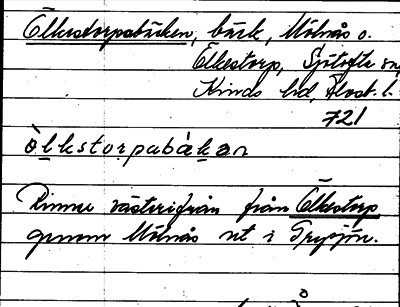 Ölkestorpabäcken, bäck, Mölnås o.
Ölkestorp, Sjötofta sn,
Kinds hd, Älvsb. l.
721
ö̀lkstorpabàkan
Rinner västerifrån från Ölkestorp
genom Mölnås ut i Trysjön.